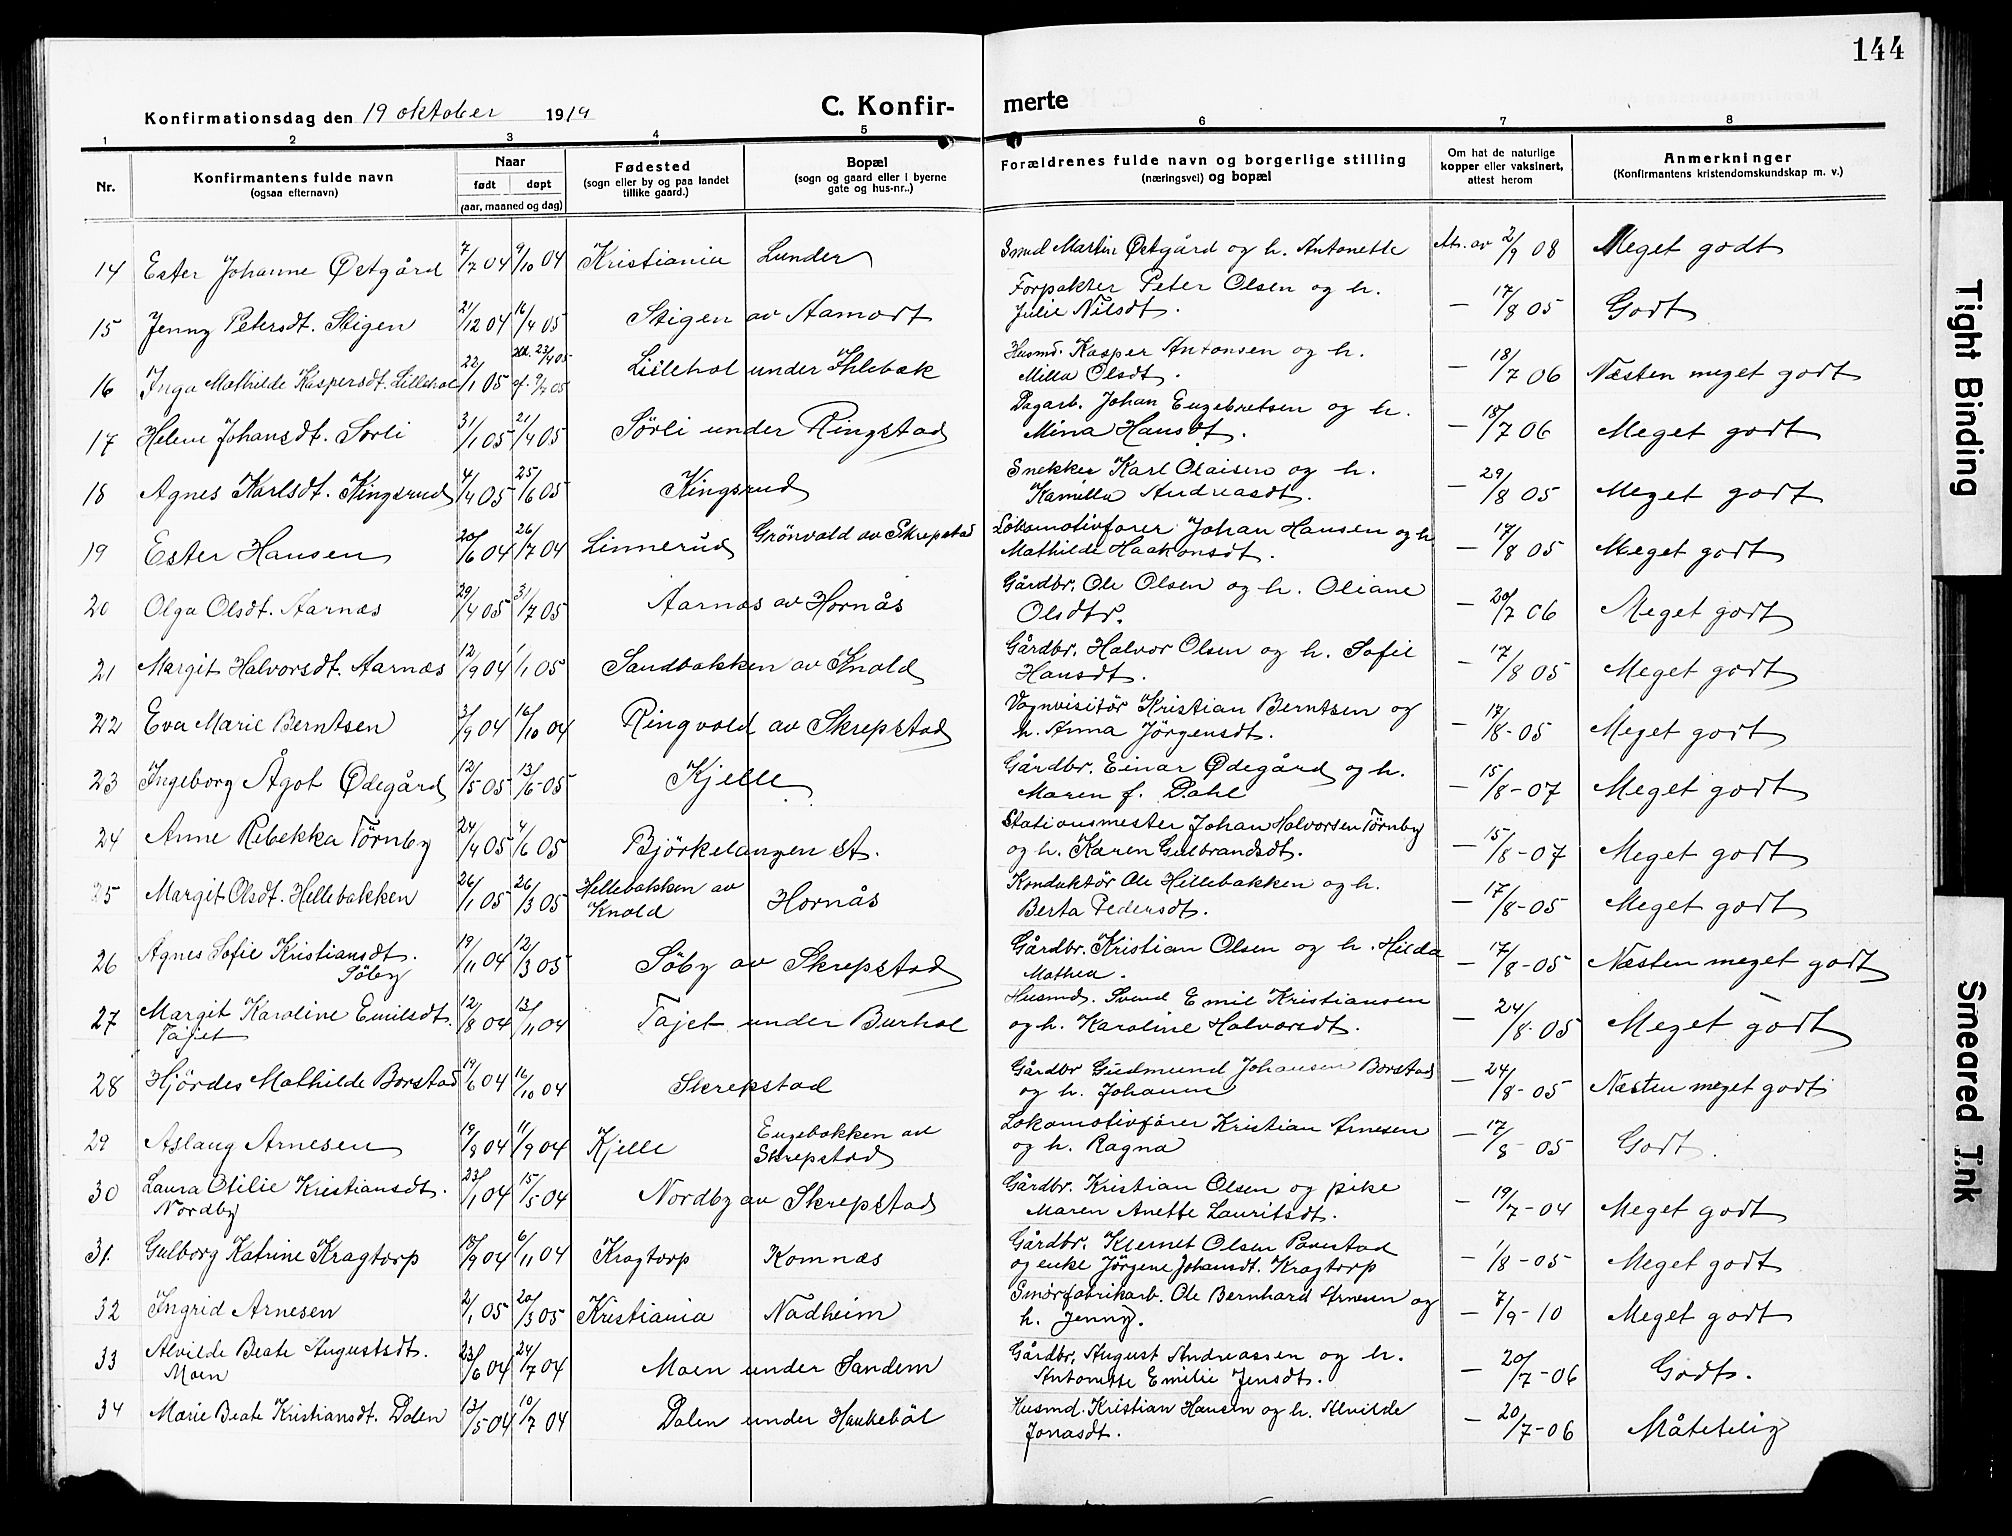 144
Konfirmationsdag den 19 oktober 1919
C. Konfir-
merte
1 2 3 4 5 6 7 8
Nr.
Konfirmantens fulde navn
(ogsaa efternavn)
Naar
født døpt
(aar, maaned og dag)
Fødested
(sogn eller by og paa landet
tillike gaard.)
Bopæl
(sogn og gaard eller i byerne
gate og hus-nr..)
Forældrenes fulde navn og borgerlige stilling
(næringsvei) og bopæl
Om hat de naturlige
kopper eller vaksinert,
attest herom
Anmerkninger
(Konfirmantens kristendomskundskap m. v.)
14 Ester Johanne Østgård 7/7 04 9/10 04 Kristiania Lunder Smed Martin Østgård og h. Antonette At. av 2/9 08 Meget godt
15 Jenny Petersdt. Stigen 21/12 04 16/4 05 Stigen av Aamodt Forpakter Peter Olsen og h.
Julie Nilsdt. — 17/8 05 Godt
16 Inga Mathilde Kaspersdt. Lillehol 22/1 05 23/4 05
of. 9/7 05 Lillehol under Ihlebæk Husmd. Kasper Antonsen og h.
Milla Olsdt. — 18/7 06 Næsten meget godt
17 Helene Johansdt. Sörli 31/1 05 21/4 05 Sörli under Ringstad Dagarb. Johan Engebretsen og h.
Mina Hansdt. — 18/7 06 Meget godt
18 Agnes Karlsdt. Kingsrud 4/4 05 25/6 05 Kingsrud Snekker Karl Olaisen og h.
Kamilla Andreasdt. — 29/8 05 Meget godt
19 Ester Hansen 20/6 04 26/7 04 Linnerud Grönvold av Skrepstad Lokomotivfører Johan Hansen og h
Mathilde Haakonsdt. — 17/8 05 Meget godt
20 Olga Olsdt. Aarnæs 29/4 05 31/7 05 Aarnæs av Hornås Gårdbr. Ole Olsen og h. Oliane
Olsdtr. — 20/7 06 Meget godt
21 Margit Halvorsdt. Aarnæs 12/9 04 1/1 05 Sandbakken av Knold Gårdbr. Halvor Olsen og h. Sofie
Hansdt. — 17/8 05 Meget godt
22 Eva Marie Berntsen 3/9 04 16/10 04 Ringvold av Skrepstad Vognvisitör Kristian Berntsen og
h. Anna Jörgensdt. — 17/8-05 Meget godt
23 Ingeborg Ågot Ødegård 12/5-05 13/6-05 Kjelle Gårdbr. Einar Ødegård og h.
Maren f. Dahl — 15/8-07 Meget godt
24 Anne Rebekka Törnby 24/4 05 4/6 05 Björkelangen st. Stationsmester Johan Halvorsen Törnby
og h. Karen Gulbrandsdt. — 15/8-07 Meget godt
25 Margit Olsdt. Hellebakken 26/1 05 26/3 05 Hellebakken av
Knold Hornås Konduktör Ole Hellebakken og h.
Berta Pedersdt. — 17/8-05 Meget godt
26 Agnes Sofie Kristiansdt.
Söby 19/11 04 12/3 05 Söby av Skrepstad Gårdbr. Kristian Olsen og h. Hilda
Mathea. — 17/8-05 Næsten meget godt
27 Margit Karoline Emilsdt.
Tajet 12/8 04 13/11 04 Tajet under Burhol Husmd. Svend Emil Kristiansen
og h. Karoline Halvorsdt. — 24/8-05 Meget godt
28 Hjördes Mathilde Borstad 19/6 04 16/10 04 Skrepstad Gårdbr Gudmund Johansen Borstad
og h. Johanne — 24/8-05 Næsten meget godt
29 Aslaug Arnesen 19/8 04 11/9 04 Kjelle Engebakken av
Skrepstad Lokomotivfører Kristian Arnesen
og h. Ragna — 17/8-05 Godt.
30 Laura Otilie Kristiansdt.
Nordby 23/1 04 15/5 04 Nordby av Skrepstad Gårdbr. Kristian Olsen og pike
Maren Anette Lauritsdt. — 19/7-04 Meget godt
31. Gulborg Katrine Kragtorp 13/9 04 6/11 04 Kragtorp Komnæs Gårdbr. Klernet Olsen
og enke Jörgene Johansdt. Kragtorp — 1/8-05 Meget godt
32 Ingrid Arnesen 2/1 05 20/3 05 Kristiania Nadheim Smörfabrikarb. Ole Bernhard Arnesen og
h. Jenny. — 7/9-10 Meget godt
33 Alvilde Beate Augustsdt.
Moen 23/6 04 24/7 04 Moen under Sandem Gårdbr. August Andreassen og h.
Antonette Emilie Jensdt. — 20/7-06 Godt.
34 Marie Beate Kristiansdt. Dalen 13/5-04 10/7 04 Dalen under Haukeböl Husmd. Kristian Hansen og h. Alvilde
Jonasdt. — 20/7-06 Måtelig
Tight Binding
Smeared Ink